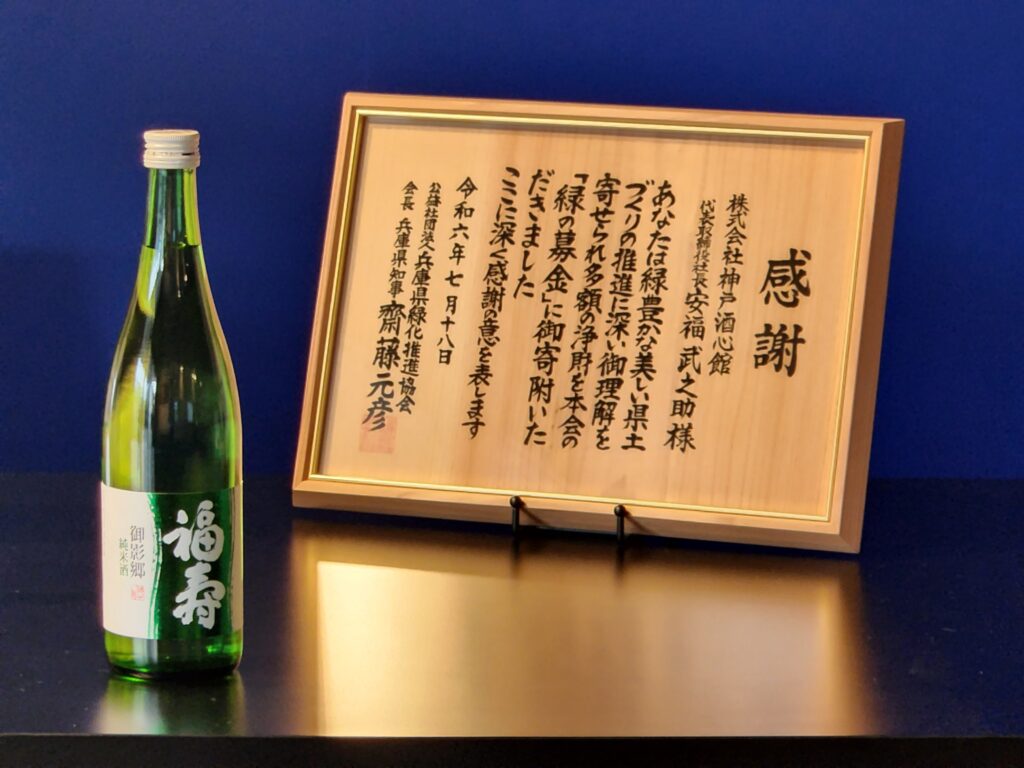 感謝
株式会社神戸酒心館
代表取締役社長 安福武之助様
あなたは緑豊かな美しい県土
づくりの推進に深い御理解を
寄せられ多額の浄財を本会の
「緑の募金」に御寄附いた
だきました
ここに深く感謝の意を表します
令和六年七月十八日
公益社団法人兵庫県緑化推進協会
会長 兵庫県知事 齋藤元彦
福寿
御影郷
純米酒